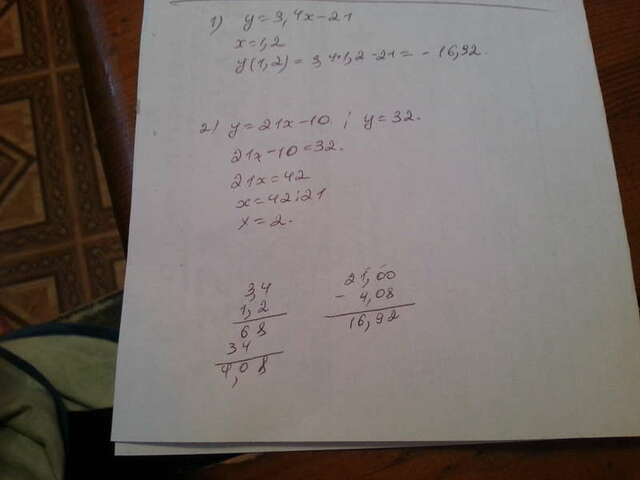 1) y=3,4x-21
x=1,2
y(1,2)=3,4·1,2-21=-16,92.
2) y=21x-10; y=32.
21x-10=32.
21x=42
x=42:21
x=2.
3,4
1,2
68
34
4,08
21,00
- 4,08
16,92